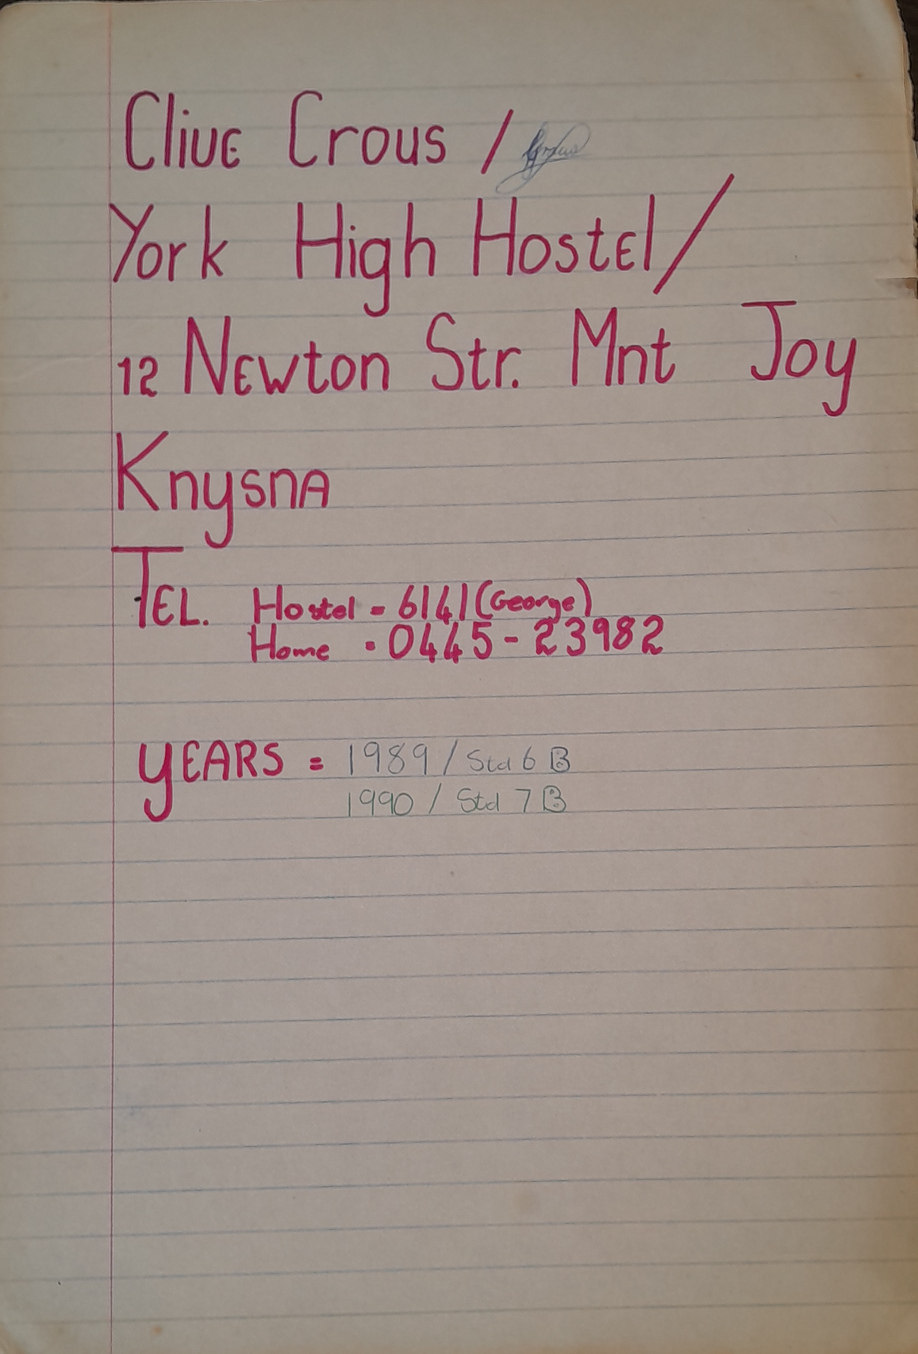 Clive Crous /
York High Hostel /
12 Newton Str. Mnt Joy
Knysna
TEL. Hostel - 6141 (George)
Home - 0445-23982
YEARS = 1989 / Std 6 B
1990 / Std 7 B